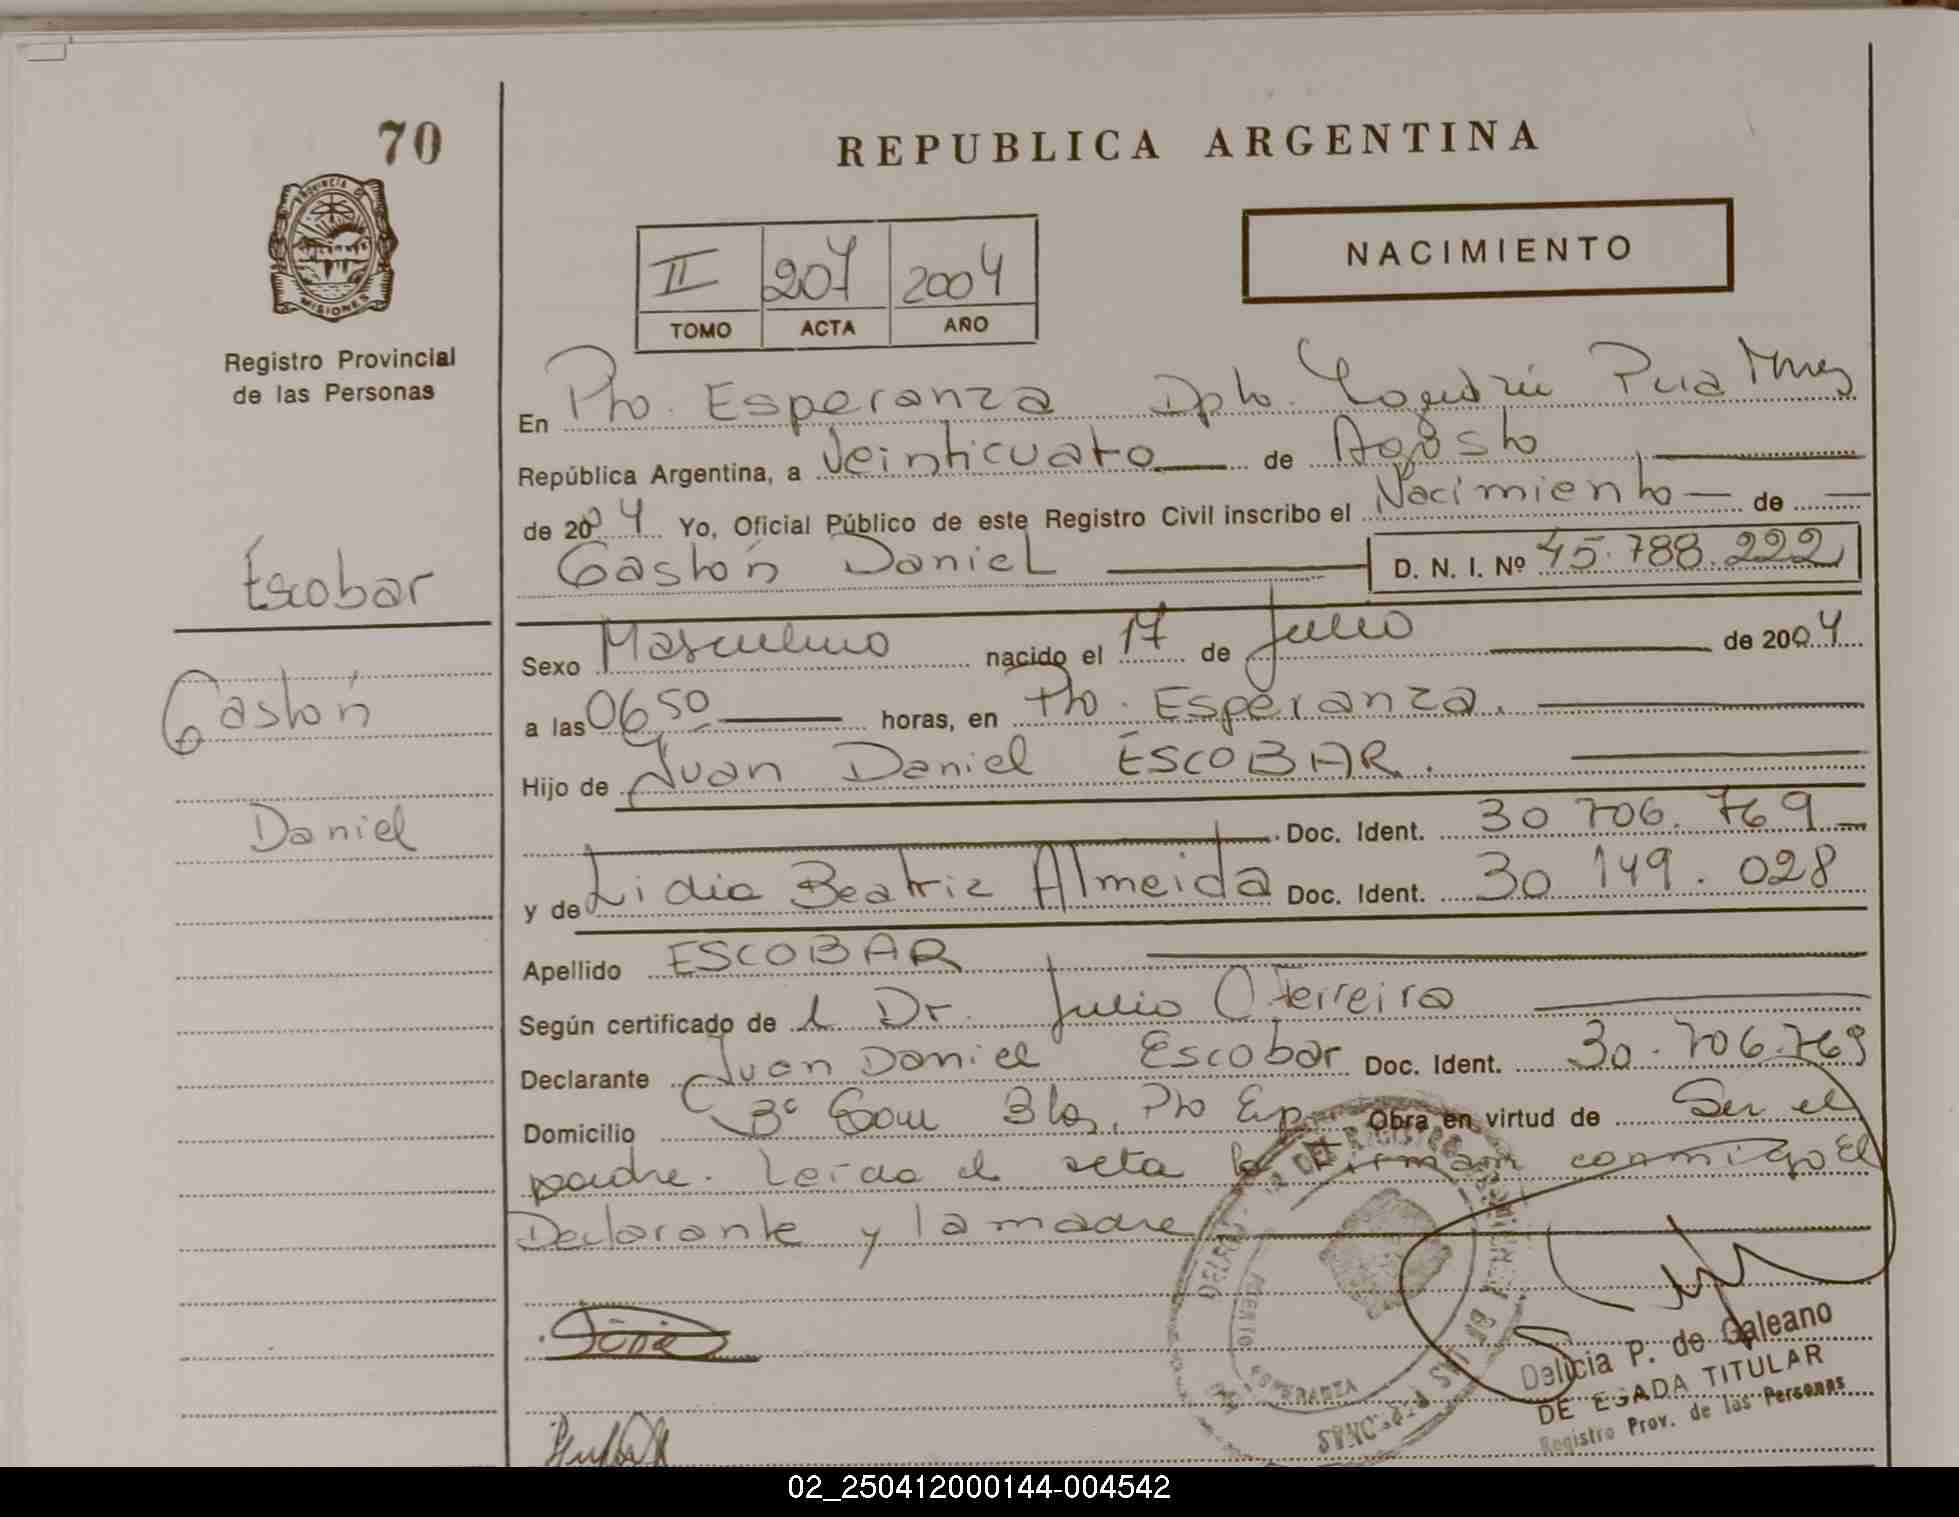 70
REPUBLICA ARGENTINA
PROVINCIA DE
MISIONES
Registro Provincial
de las Personas
II 207 2004
TOMO ACTA AÑO
NACIMIENTO
En Pto. Esperanza Dpto. Pcia Mnes
República Argentina, a Veinticuato de Agosto
de 2004 Yo, Oficial Público de este Registro Civil inscribo el Nacimiento de
Gastón Daniel D. N. I. Nº 45.788.222
Escobar
Gastón
Daniel
Sexo Masculino nacido el 17 de Julio de 2004
a las 06 50 horas, en Pto. Esperanza.
Hijo de Juan Daniel ESCOBAR.
Doc. Ident. 30 706.769
y de Lidia Beatriz Almeida Doc. Ident. 30 149.028
Apellido ESCOBAR
Según certificado de l Dr. Julio C Ferreira
Declarante Juan Daniel Escobar Doc. Ident. 30.706.769
Domicilio Bº Pto Esp. Obra en virtud de Ser el
padre. Leída el acta la firman conmigo El
Declarante y la madre
PUERTO ESPERANZA
Delicia P. de Galeano
DE EGADA TITULAR
Registro Prov. de las Personas
02_250412000144-004542